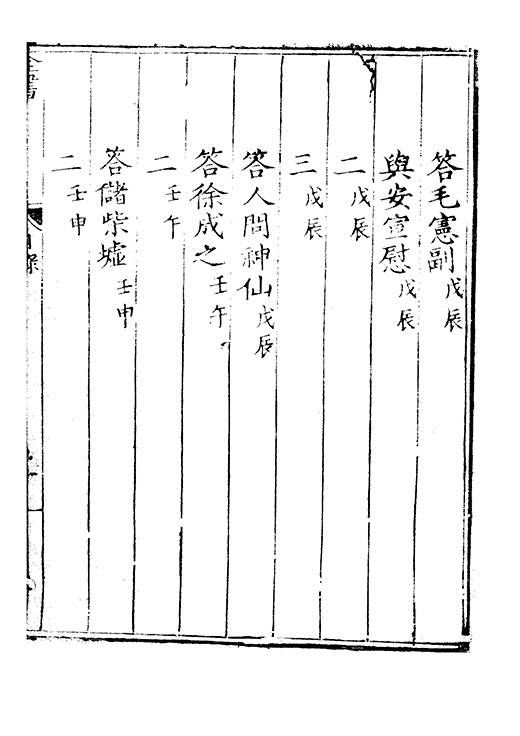 答毛憲副戊辰
與安宣慰戊辰
二戊辰
三戊辰
答人問神仙戊辰
答徐成之壬午
二壬午
答儲柴墟壬申
二壬申
目錄